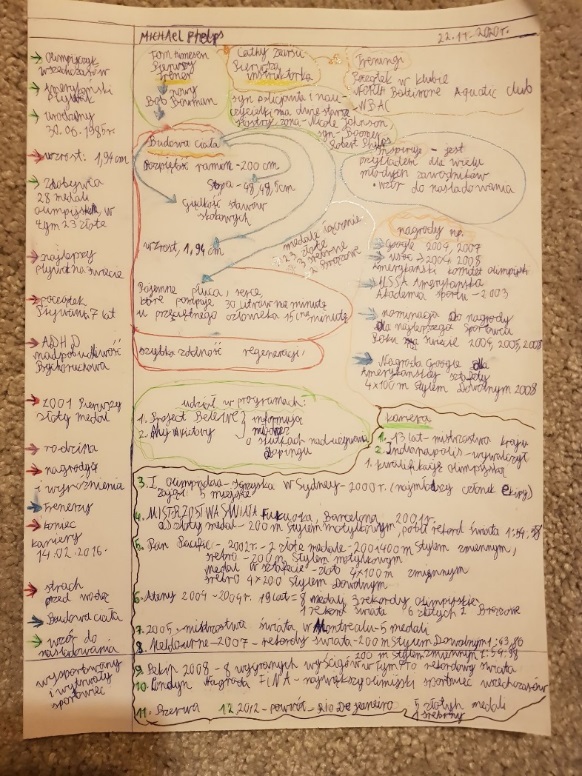 MICHAEL Phelps
22.11.2020r.
Olimpijczyk
wszechczasów
Amerykański
pływak
urodzony
30.06.1985r
wzrost. 1,94cm
Zdobywca
28 medali
olimpijskich, w
tym 23 złote
najlepszy
pływak na świecie
początek
pływania 7 lat
ADHD
nadpobudliwość
Psychoruchowa
2001 Pierwszy
złoty medal
rodzina
nagrody
i wyróżnienia
trenerzy
koniec
kariery
14.02.2016.
strach
przed wodą
Budowa ciała
wzór do
naśladowania
wysportowany
i wytrwały
sportowiec
Tom
Pierwszy
trener
nowy
Bob Bowman
Cathy
Pierwsza
instruktorka
Treningi
Początek w klubie
North Baltimore Aquatic club
NBAC
syn policjanta i nauczycielki ma dwie siostry
żona - Nicole Johnson
syn - Boomer
Robert Phelps
Budowa ciała
Rozpiętość ramion - 200 cm
Stopa - 48, 48,5cm
Giętkość stawów
skokowych
wzrost, 1,94 cm
Pojemne płuca i serce,
które pompuje 30 litrów na minutę
u przeciętnego człowieka 15 na minutę
szybka zdolność regeneracji
Inspiruje - jest
przykładem dla wielu
młodych zawodników
- wzór do naśladowania
medale łącznie
23 złote
3 srebrne
2 brązowe
nagrody na:
Google 2004, 2007
2004, 2008
Amerykański komitet olimpijski
USSA Amerykańska
Akademia sportu - 2003
nominacja do nagrody
dla najlepszego sportowca
Roku na świecie 2004, 2005, 2008
Nagroda Google dla
Amerykańskiej sztafety
4x100 m stylem Dowolnym 2008
udział w programach:
1. Project Believe
2.
informują
młodzież
o skutkach nadużywania
dopingu
kariera
1. 13 lat - mistrzostwo kraju
2. Indianapolis - wywalczył
1. kwalifikację olimpijską
3. I. olimpiada - Igrzyska w Sydney - 2000r. (najmłodszy członek ekipy)
zajął 5 miejsce
4. MISTRZOSTWA ŚWIATA Fukuoka, Barcelona 2001r
złoty medal - 200m stylem motylkowym, pobił rekord świata
5. Pan Pacific - 2002r. - 2 złote medale - 200 i 400m Stylem zmiennym,
srebro - 200m stylem motylkowym
medal w sztafecie - złoto 4x100m zmiennym
srebro 4x200 stylem Dowolnym.
6. Ateny 2004 - 2004r. 19 lat = 8 medali, 3 rekordy olimpijskie
1 rekord świata 6 złotych 2 Brązowe
7. 2005. mistrzostwa świata w Montrealu - 5 medali
8. Melbourne - 2007 - rekordy świata - 200m stylem Dowolnym 1:43,86
- 200 m stylem zmiennym 1:54.98
9. Pekin 2008 - 8 wygranych wyścigów w tym 7 to rekordy świata
10. Londyn nagroda FINA - największy olimpijski sportowiec wszechczasów
11. Przerwa 12 2012 - powrót - Rio De Janeiro 5 złotych medali
1 srebrny